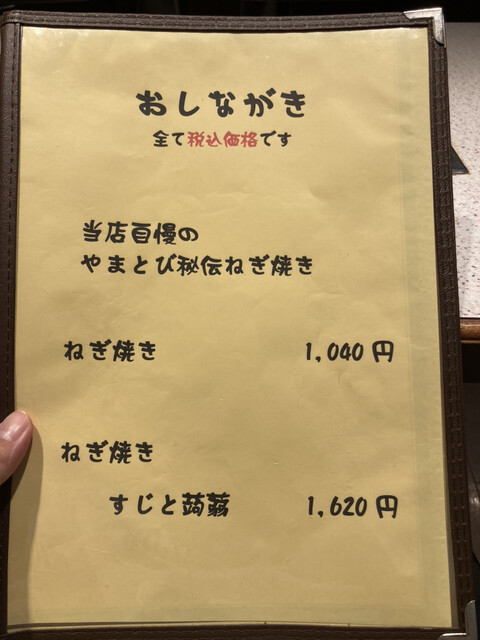 おしながき
全て税込価格です
当店自慢の
やまとび秘伝ねぎ焼き
ねぎ焼き 1,040円
ねぎ焼き
すじと蒟蒻 1,620円